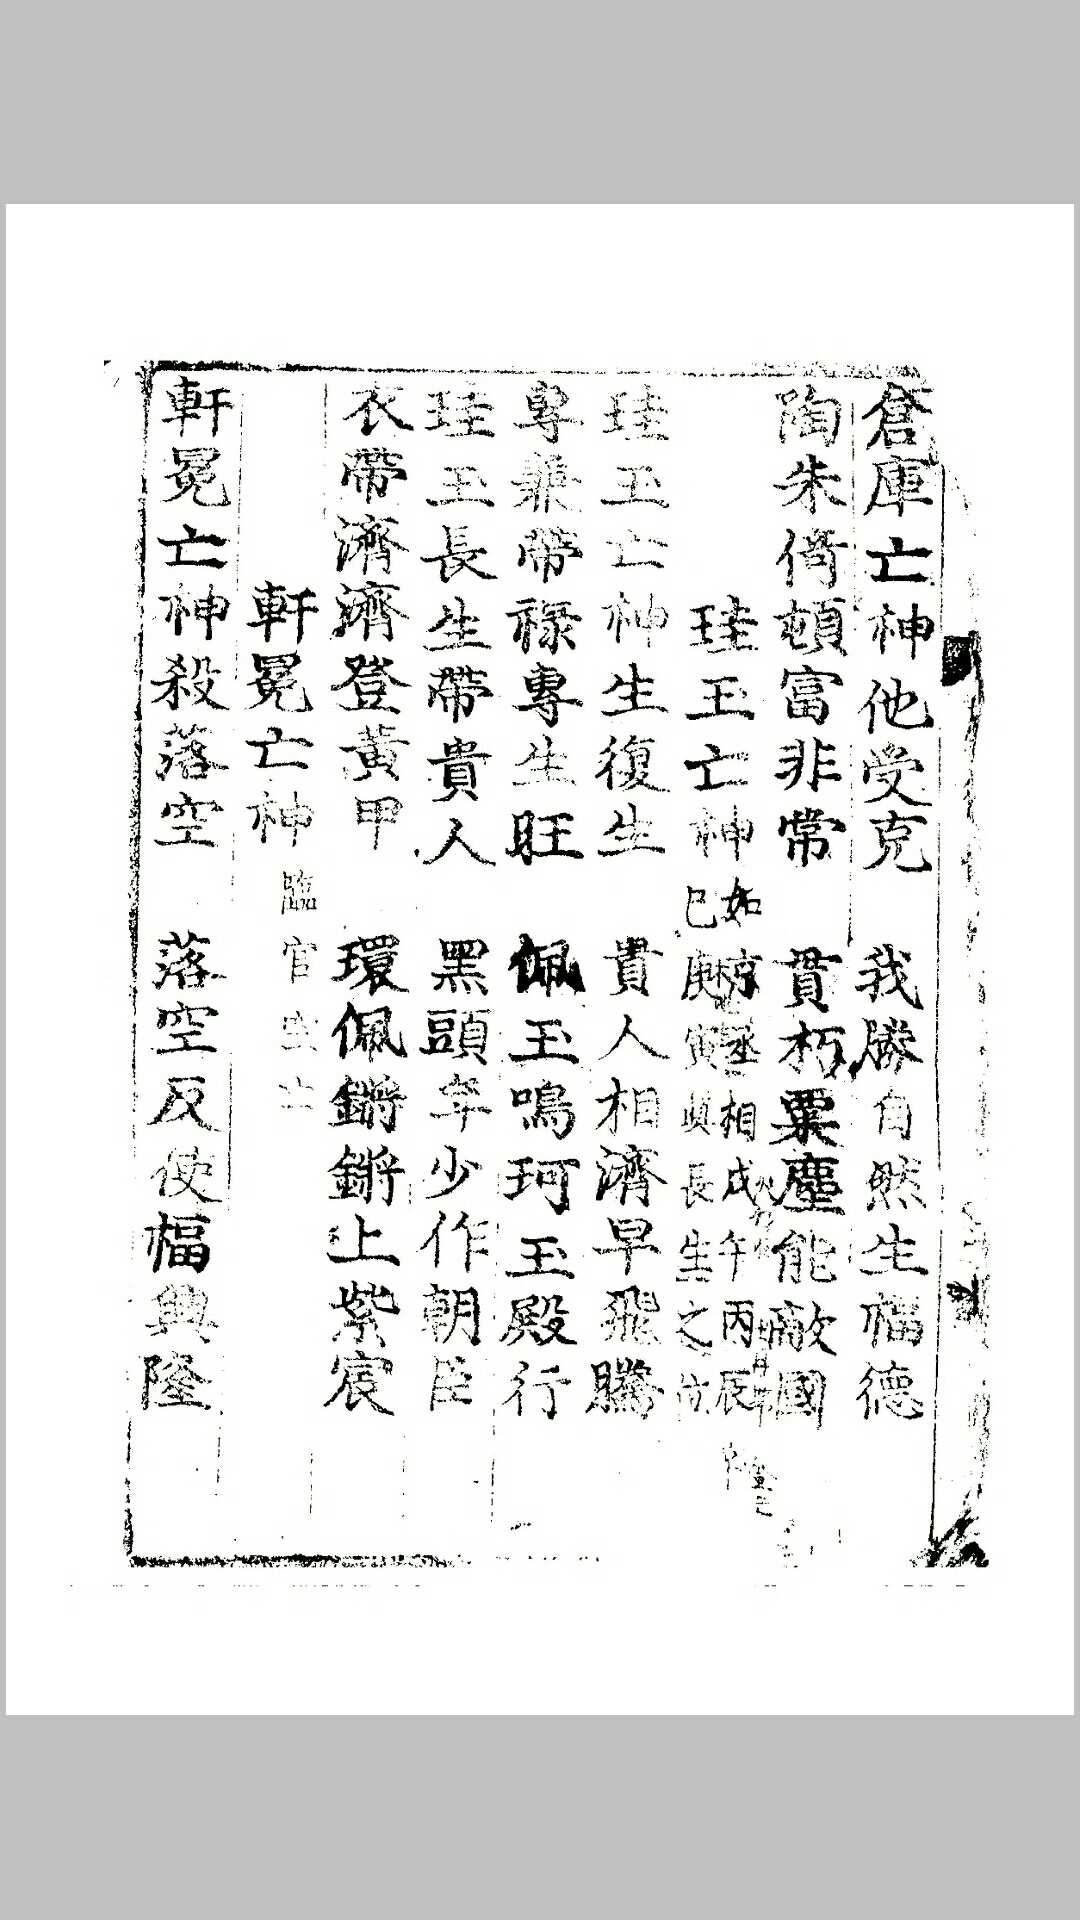 倉庫亡神他受克　我勝自然生福德
陶朱倚頓富非常　貫朽粟塵能敵國
珪玉亡神
如京丞相戊午丙辰
己庚寅與長生之
珪玉亡神生復生　貴人相濟早飛騰
專兼帶祿專生旺　佩玉鳴珂玉殿行
珪玉長生帶貴人　黑頭年少作朝臣
衣帶濟濟登黃甲　環佩鏘鏘上紫宸
軒冕亡神
臨官
軒冕亡神殺落空　落空反使福興隆